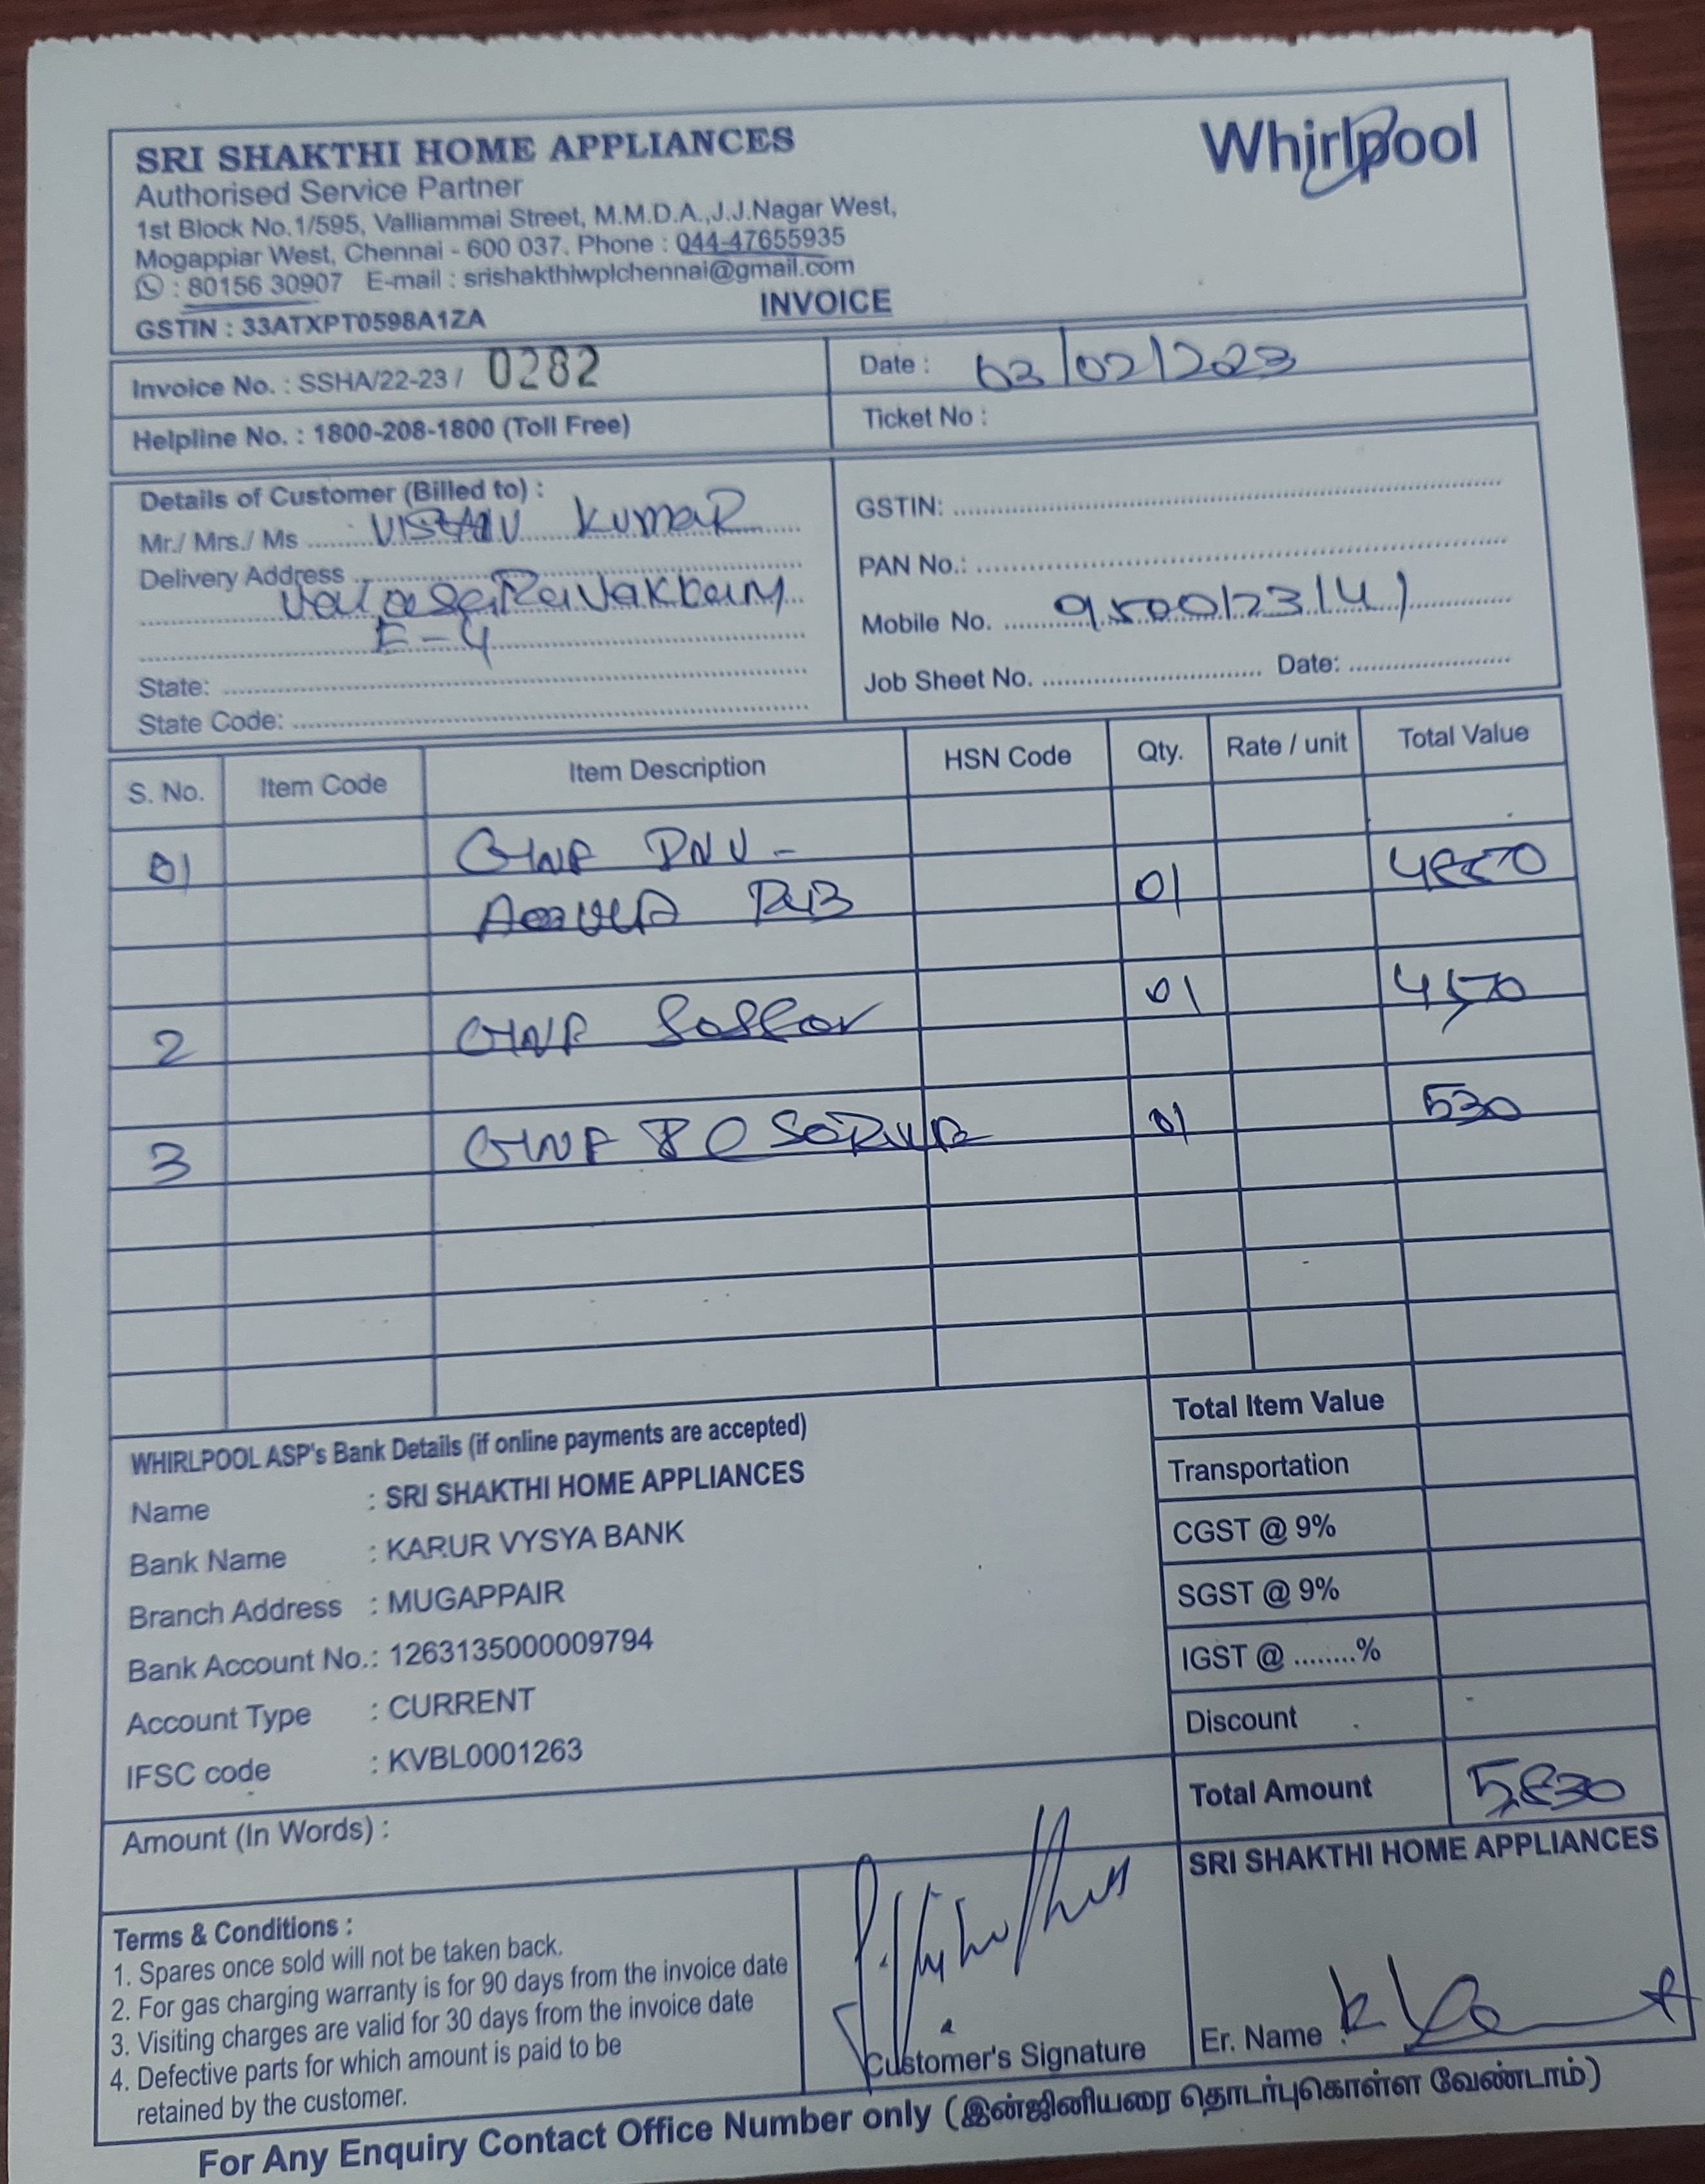 SRI SHAKTHI HOME APPLIANCES
Whirlpool
Authorised Service Partner
1st Block No.1/595, Valliammai Street, M.M.D.A.,J.J.Nagar West,
Mogappiar West, Chennai - 600 037. Phone : 044-47655935
: 80156 30907 E-mail : srishakthiwplchennai@gmail.com
GSTIN : 33ATXPT0598A1ZA
INVOICE
Invoice No. : SSHA/22-23 / 0282
Date : 02/02/2023
Helpline No. : 1800-208-1800 (Toll Free)
Ticket No :
Details of Customer (Billed to) :
Mr./ Mrs./ Ms Kumar
Delivery Address
Valasaravakkam
E-4
State:
State Code:
GSTIN:
PAN No.:
Mobile No. 9500123141
Job Sheet No. Date:
S. No. Item Code Item Description HSN Code Qty. Rate / unit Total Value
01
01
2 01
3 01 530
WHIRLPOOL ASP's Bank Details (if online payments are accepted)
Name : SRI SHAKTHI HOME APPLIANCES
Bank Name : KARUR VYSYA BANK
Branch Address : MUGAPPAIR
Bank Account No.: 1263135000009794
Account Type : CURRENT
IFSC code : KVBL0001263
Total Item Value
Transportation
CGST @ 9%
SGST @ 9%
IGST @ ........%
Discount
Total Amount 5,830
Amount (In Words) :
SRI SHAKTHI HOME APPLIANCES
Terms & Conditions :
1. Spares once sold will not be taken back.
2. For gas charging warranty is for 90 days from the invoice date
3. Visiting charges are valid for 30 days from the invoice date
4. Defective parts for which amount is paid to be
retained by the customer.
Customer's Signature
Er. Name :
For Any Enquiry Contact Office Number only (இன்ஜினியரை தொடர்புகொள்ள வேண்டாம்)